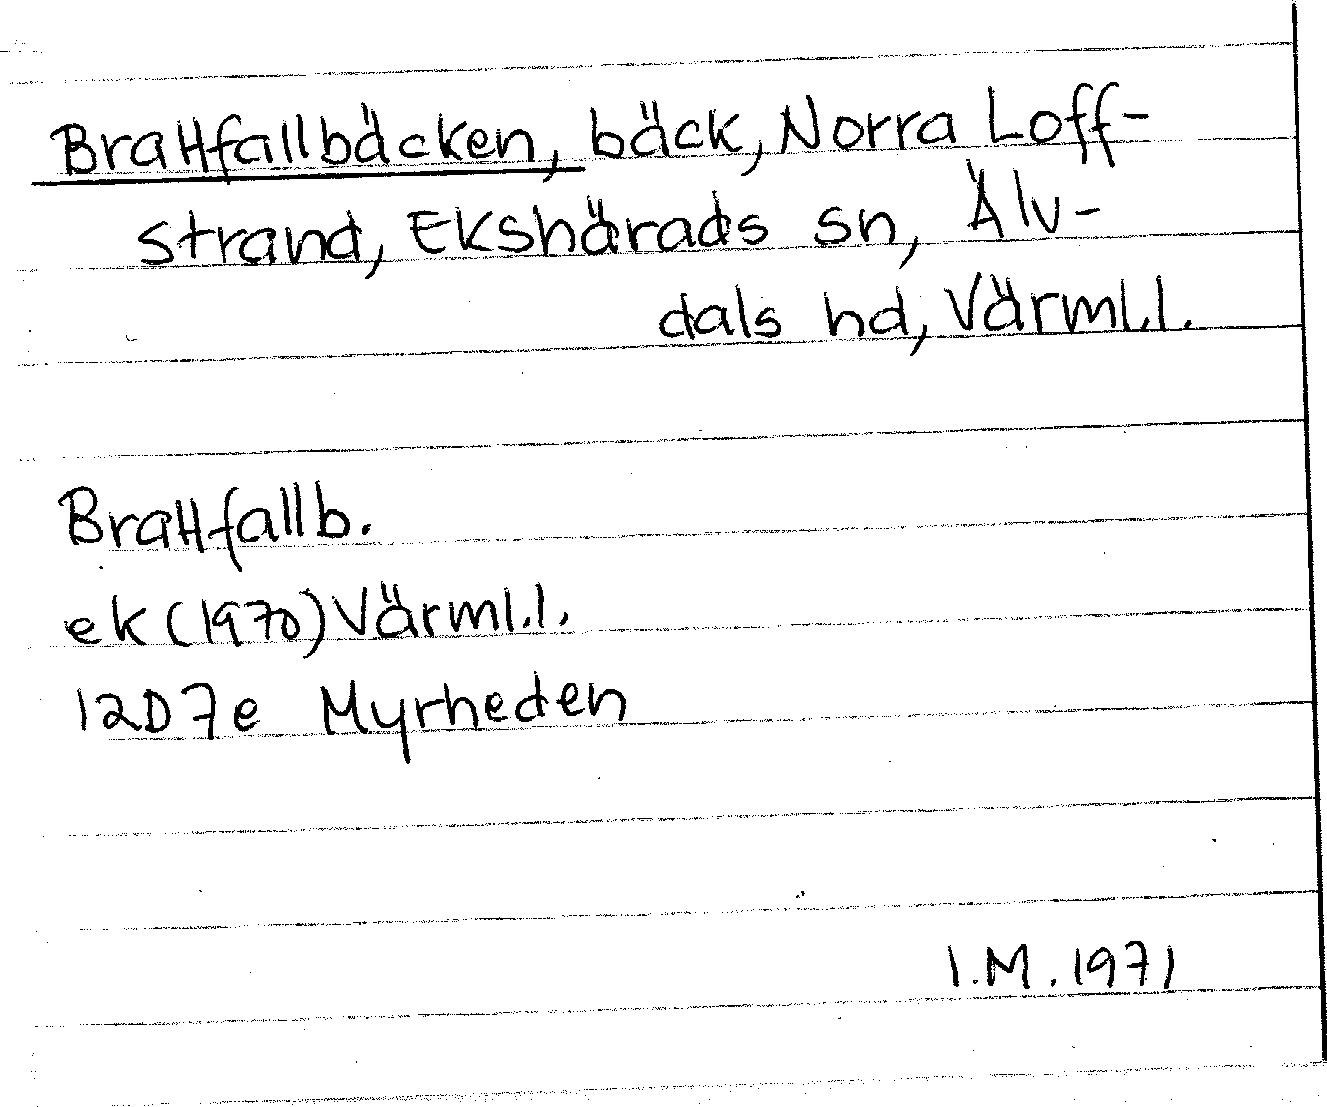 Brattfallbäcken, bäck, Norra Loff-
strand, Ekshärads sn, Älv-
dals hd, Värml.l.
Brattfallb.
ek (1970) Värml.l.
12D7e Myrheden
I.M. 1971